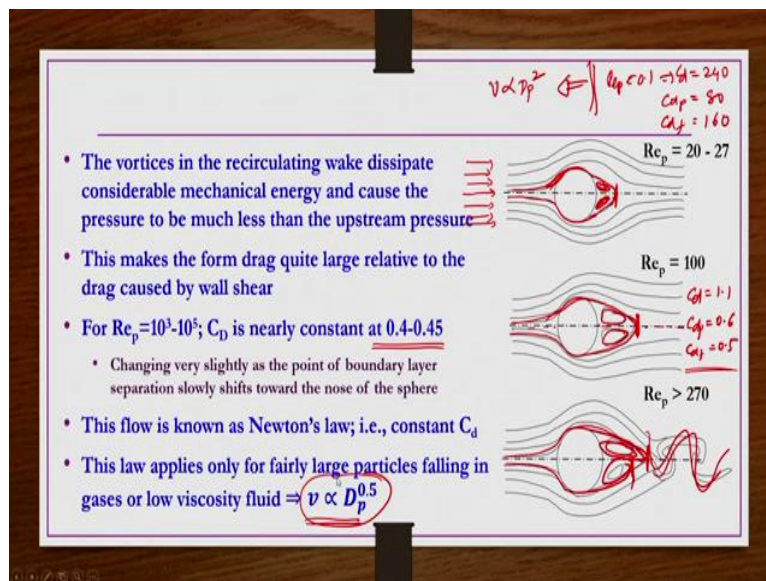 v∝Dp² ⇐ Rep=0.1 ⇒ Cd=240
Cdp = 80
Cdf = 160
Rep = 20 - 27
• The vortices in the recirculating wake dissipate
considerable mechanical energy and cause the
pressure to be much less than the upstream pressure
• This makes the form drag quite large relative to the
drag caused by wall shear
Rep = 100
Cd = 1.1
Cdp = 0.6
Cdf = 0.5
• For Rep=10³-10⁵; CD is nearly constant at 0.4-0.45
• Changing very slightly as the point of boundary layer
separation slowly shifts toward the nose of the sphere
Rep > 270
• This flow is known as Newton's law; i.e., constant Cd
• This law applies only for fairly large particles falling in
gases or low viscosity fluid ⇒ v ∝ Dp^0.5